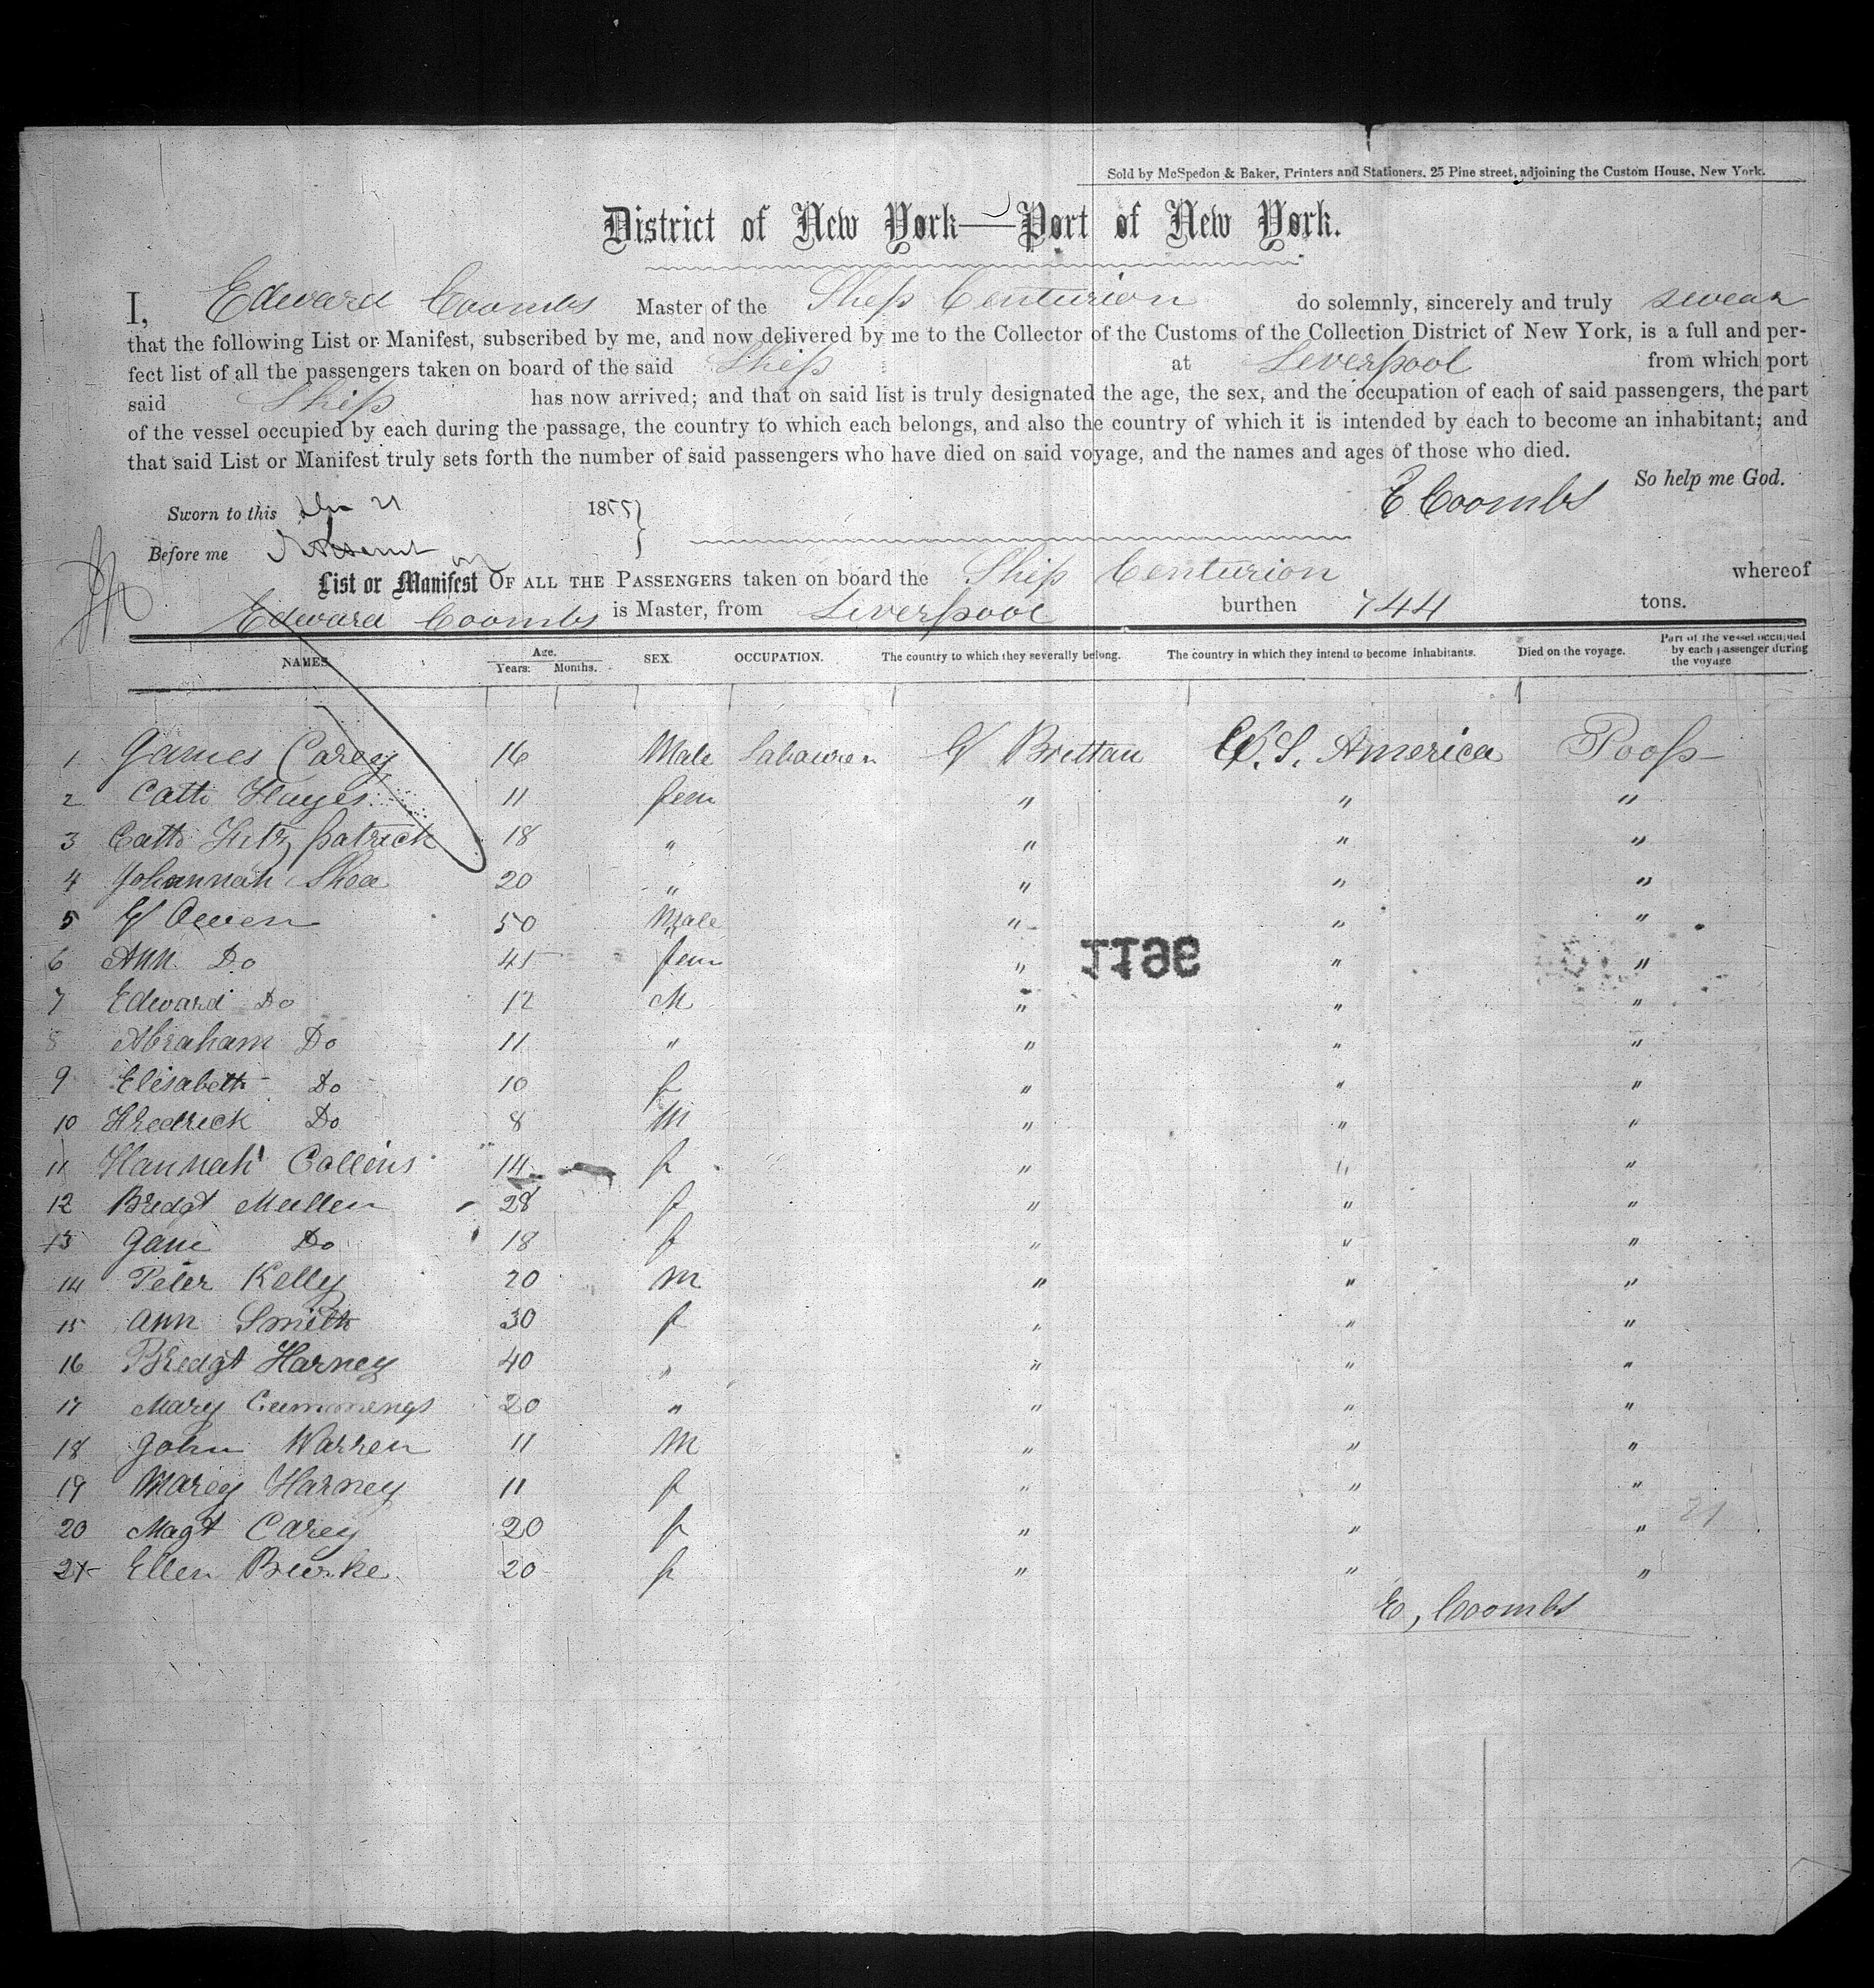 Sold by McSpedon & Baker, Printers and Stationers, 25 Pine street, adjoining the Custom House, New York.
District of New York—Port of New York.
I, Edward Coombs Master of the Ship Centurion do solemnly, sincerely and truly swear
that the following List or Manifest, subscribed by me, and now delivered by me to the Collector of the Customs of the Collection District of New York, is a full and per-
fect list of all the passengers taken on board of the said Ship at Liverpool from which port
said Ship has now arrived; and that on said list is truly designated the age, the sex, and the occupation of each of said passengers, the part
of the vessel occupied by each during the passage, the country to which each belongs, and also the country of which it is intended by each to become an inhabitant; and
that said List or Manifest truly sets forth the number of said passengers who have died on said voyage, and the names and ages of those who died.
So help me God.
E Coombs
Sworn to this 21 1855
Before me
List or Manifest OF ALL THE PASSENGERS taken on board the Ship Centurion whereof
Edward Coombs is Master, from Liverpool burthen 744 tons.
NAMES. Age. Years. Months. SEX. OCCUPATION. The country to which they severally belong. The country in which they intend to become inhabitants. Died on the voyage. Part of the vessel occupied by each passenger during the voyage
1 James Carey 16 Male Labourer G Brittan U.S. America Poop
2 Cath Hayes 11 fem " " "
3 Cath Fitz patrick 18 " " " "
4 Johannah Shea 20 " " " "
5 G Owen 50 Male " " "
6 Ann Do 45 fem " " "
7 Edward Do 12 M " " "
8 Abraham Do 11 " " " "
9 Elisabeth Do 10 f " " "
10 Fredrick Do 8 M " " "
11 Hannah Collins 14 f " " "
12 Bredgt Mullen 28 f " " "
13 Jane Do 18 f " " "
14 Peter Kelly 20 M " " "
15 Ann Smith 30 f " " "
16 Bredgt Harney 40 " " " "
17 Mary Cummings 20 " " " "
18 John Warren 11 M " " "
19 Marey Harney 11 f " " "
20 Magt Carey 20 f " " " 21
21 Ellen Burke 20 f " " "
E, Coombs
1196